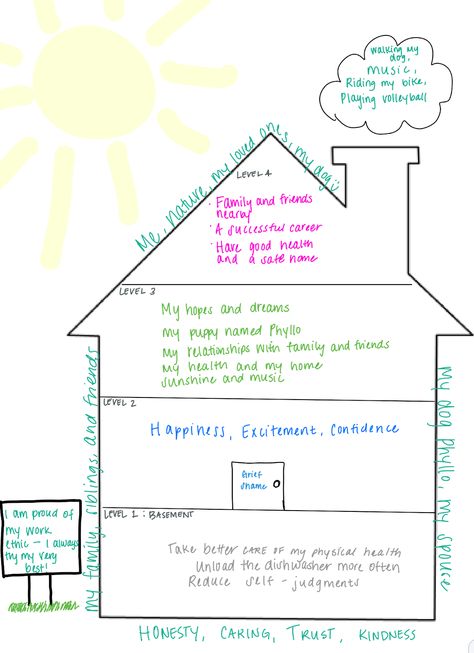 walking my
dog,
music,
Riding my bike,
Playing volleyball
Me, nature, my loved ones, my dog
LEVEL 4
· Family and friends
nearby
· A successful career
· Have good health
and a safe home
LEVEL 3
My hopes and dreams
My puppy named Phyllo
My relationships with family and friends
My health and my home
sunshine and music
my family, siblings, and friends
my dog Phyllo, my spouse
LEVEL 2
Happiness, Excitement, Confidence
Grief
shame
LEVEL 1: BASEMENT
Take better CARE OF my physical health
Unload the dishwasher more often
Reduce self-judgments
I am proud of
my work
ethic - I always
try my very
best!
HONESTY, CARING, TRUST, KINDNESS